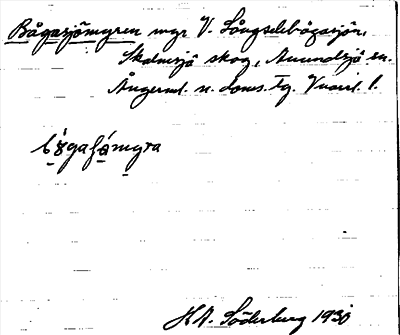 Bågasjömyren myr V. Långselebågasjön,
Skalmsjö skog, Anundsjö sn.
Ångerml. n. Doms. Tg.
bågasjömyra
H.A. Söderberg 1930